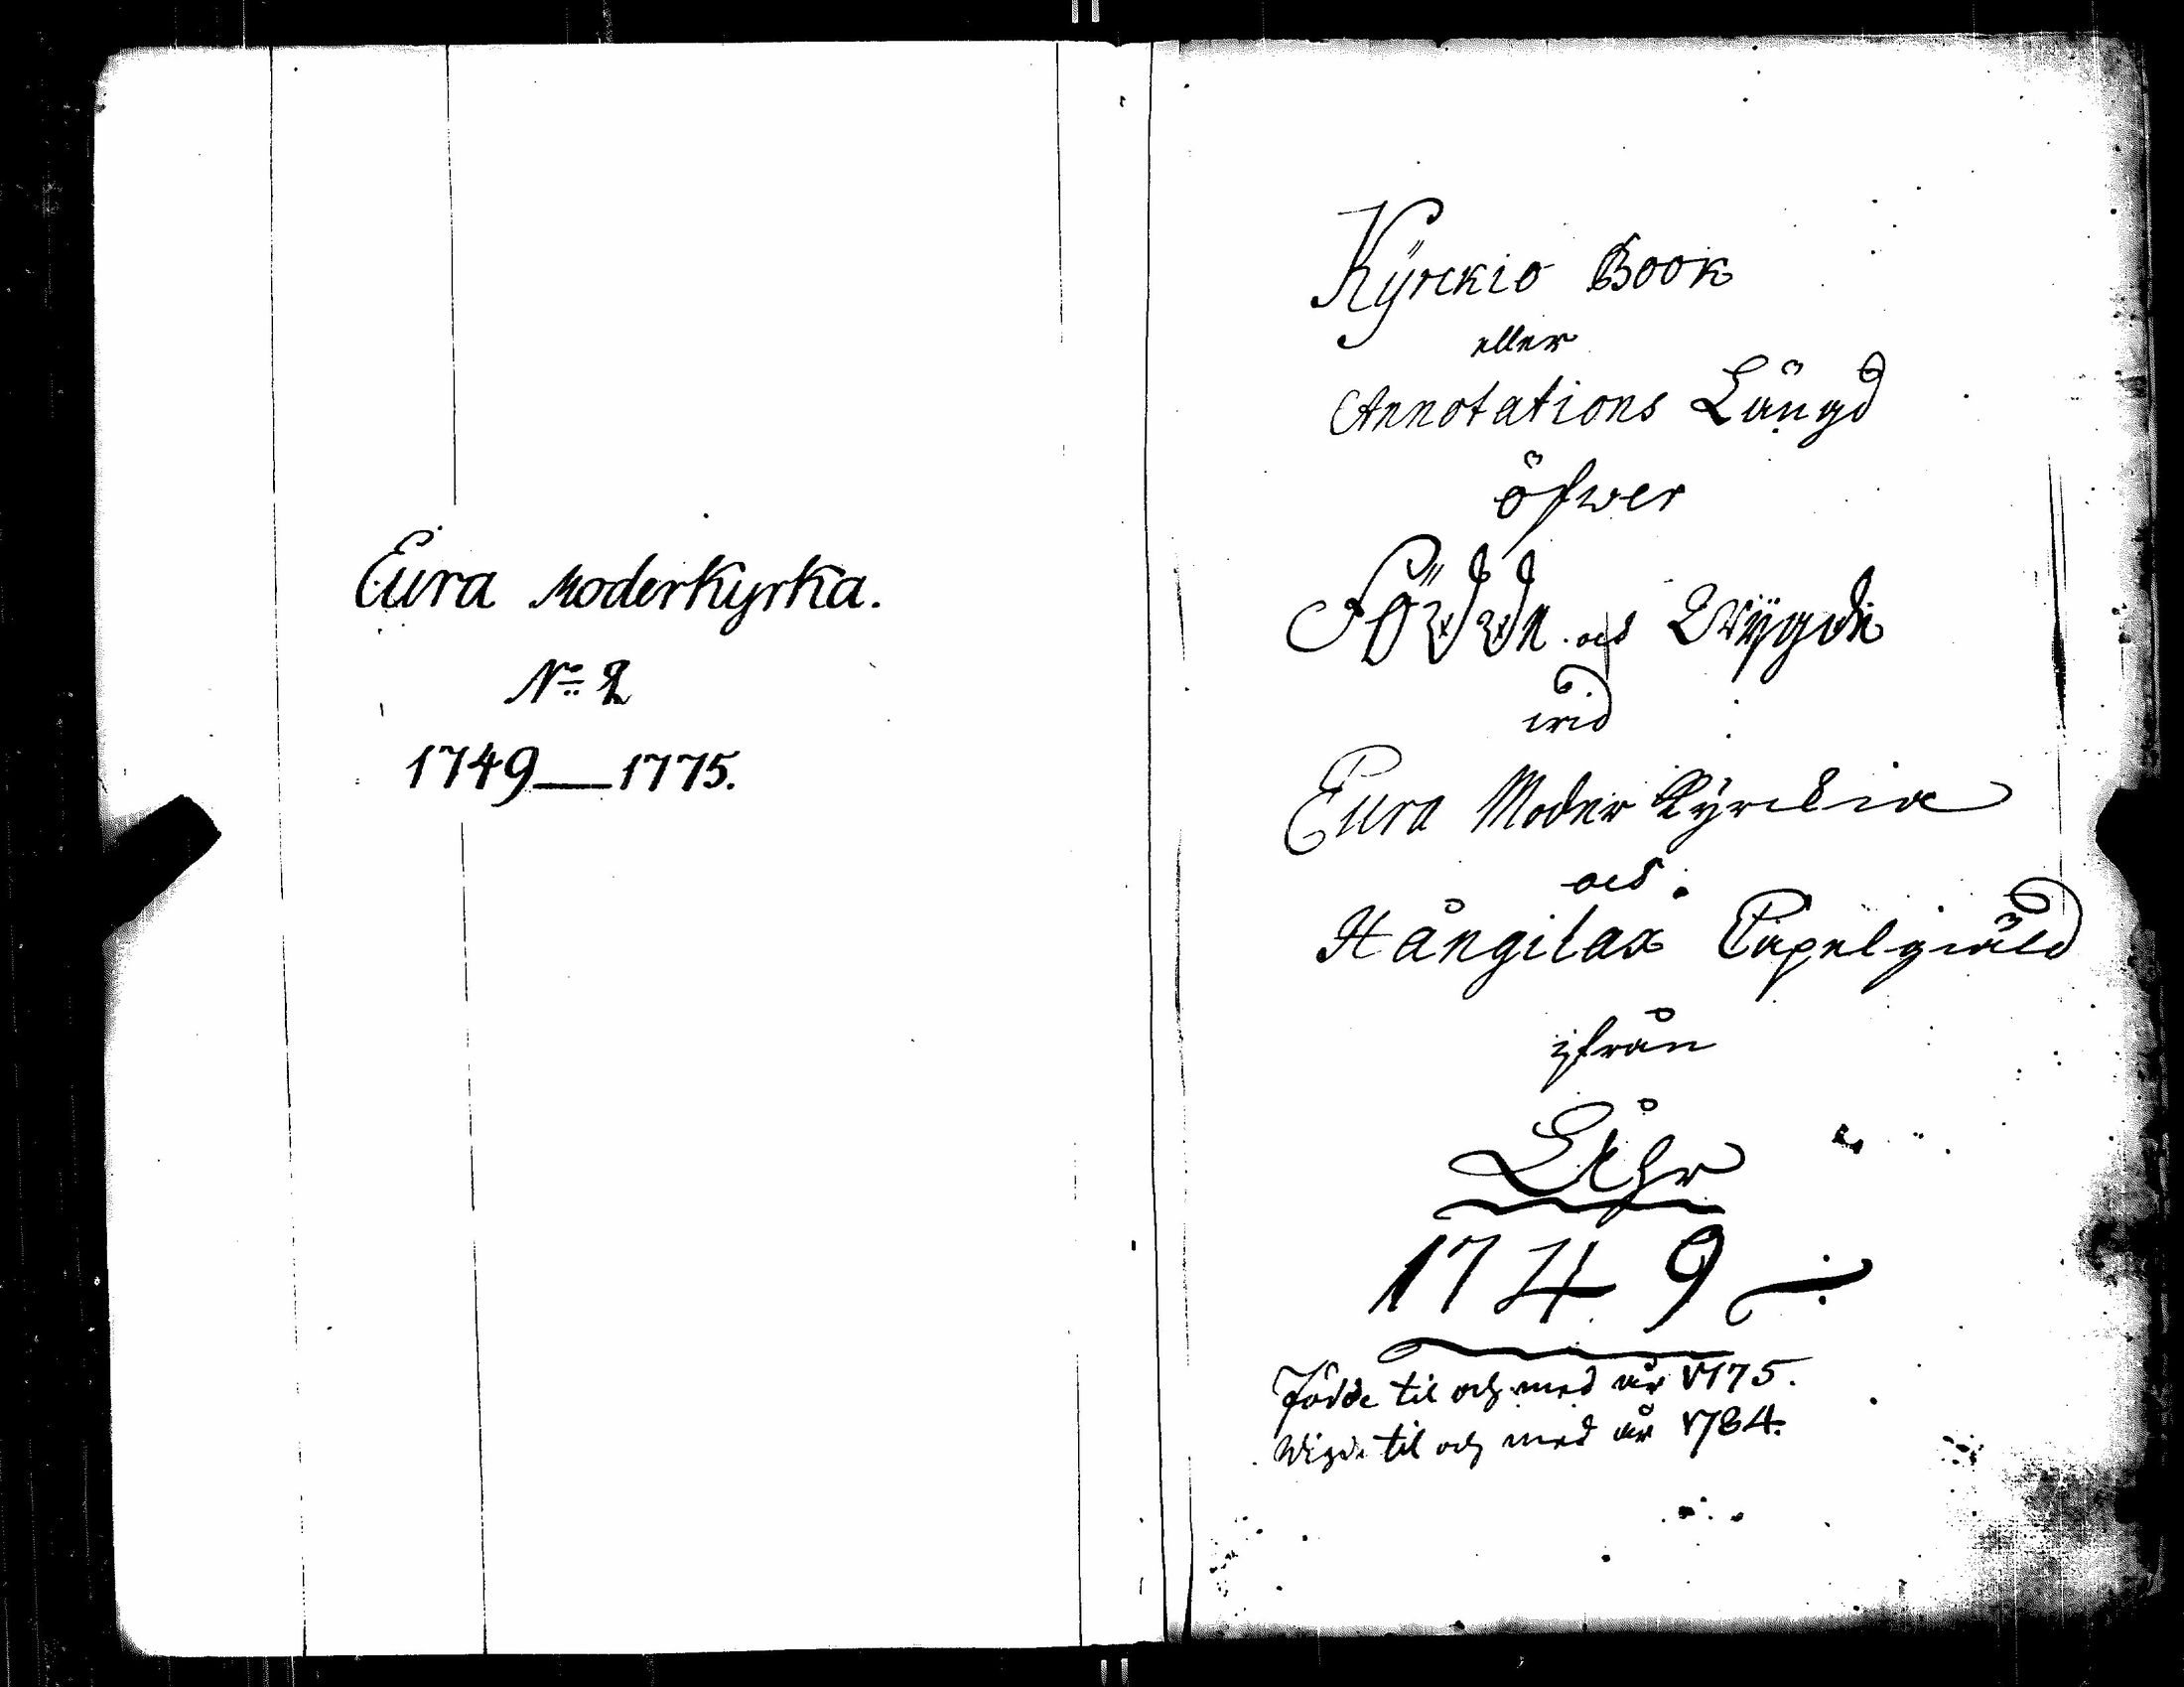 Eura Moderkyrka.
No 2
1749—1775.
Kÿrckio Book
eller
Annotations Längd
öfwer
Födde och Wÿgde
wid
Eura Moder Kÿrckia
och
Hångilax Capelgiäld
ifrån
Åhr
1749
Födde til och med år 1775.
Wigde til och med år 1784.